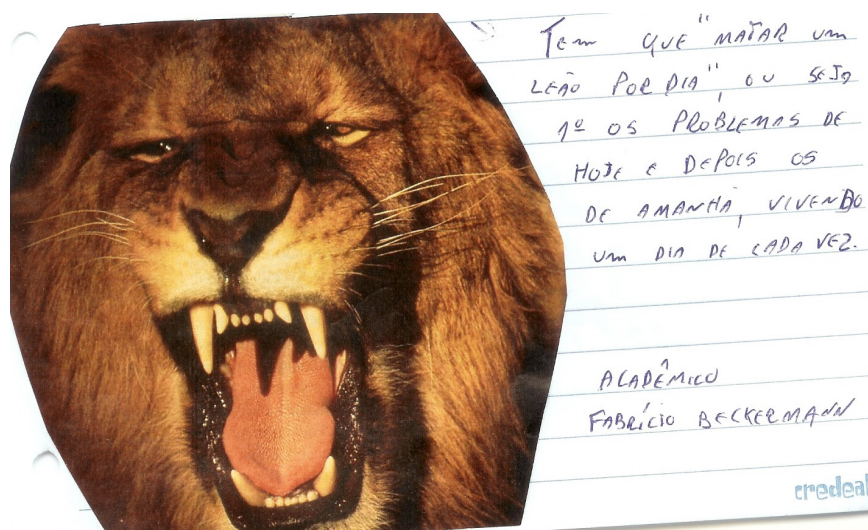 Tem que "MATAR um
LEÃO POR DIA", OU SEJA
1º OS PROBLEMAS DE
HOJE E DEPOIS OS
DE AMANHÃ, VIVENDO
um DIA DE CADA VEZ.
ACADÊMICO
FABRÍCIO BECKERMANN
credeal